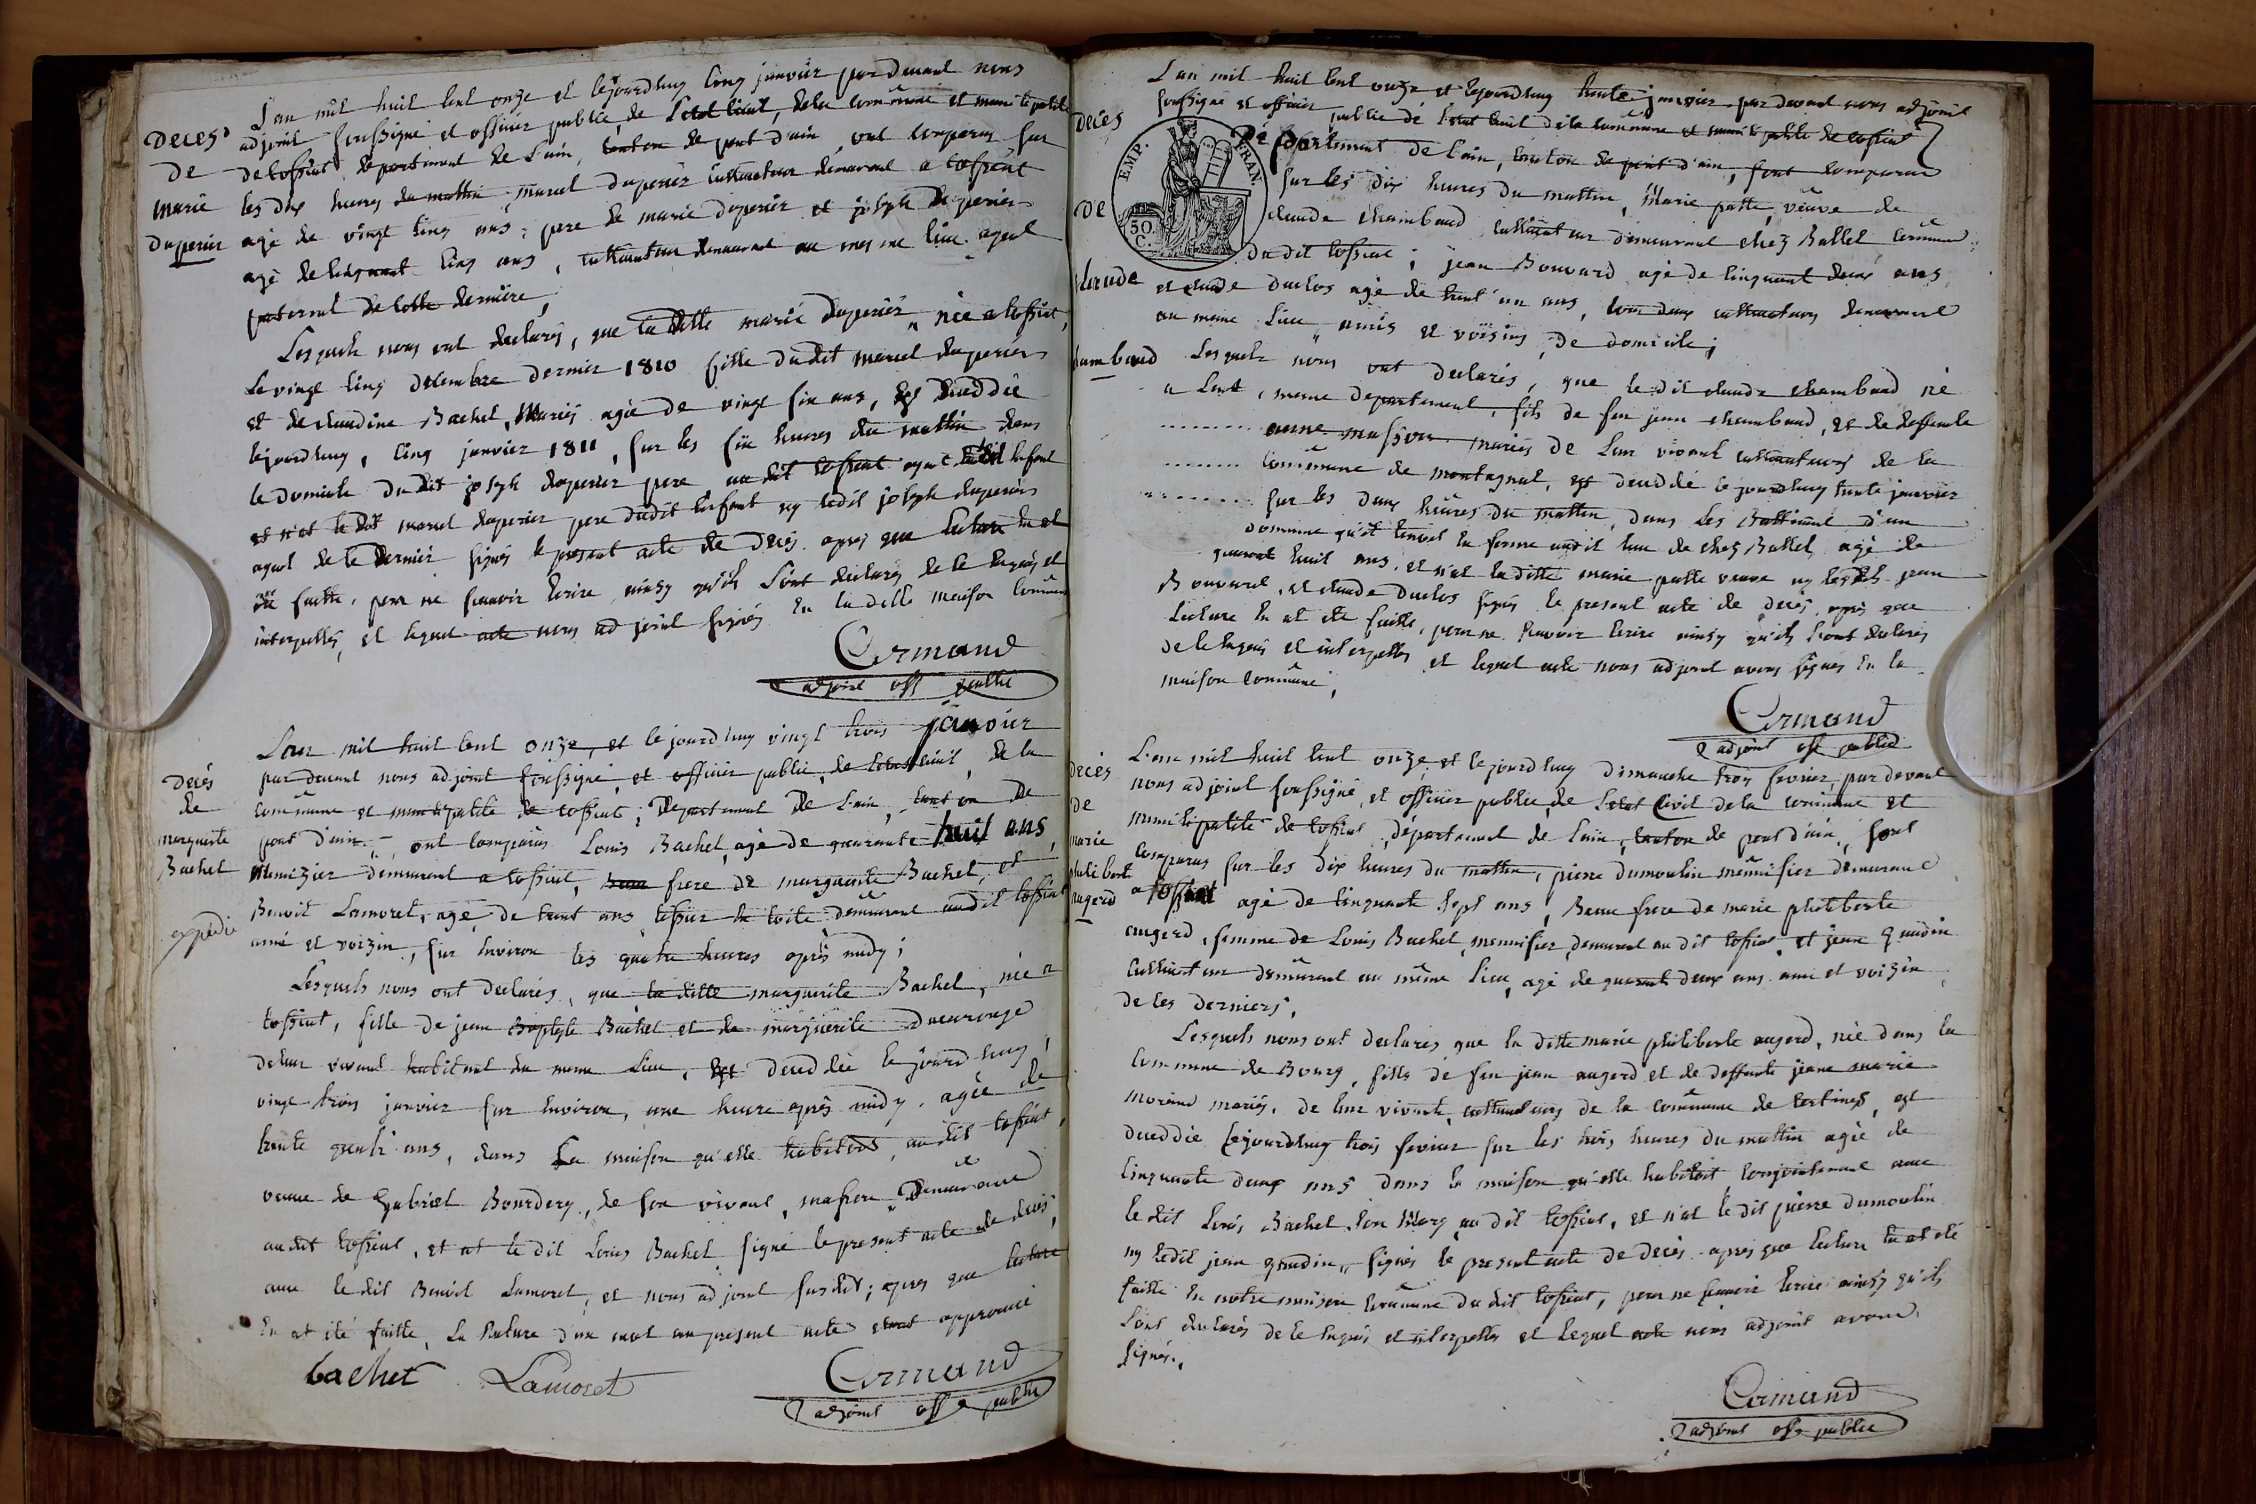 Decès
de
marie
Duperier
L'an mil huit cent onze et lejourdhuy cinq janvier par devant nous
adjoint soussigné et officier public, de L'etat civil, de la commune et municipalité
de tossiat, departement de L'ain, canton de pont d'ain, ont comparus sur
les dix heures du mattin marcel duperier cultivateur demeurant a tossiat
agé de vingt cinq ans, pere de marie duperier et joseph duperier
agé de cinquant cinq ans, cultivateur demeurant au mesme lieu ayeul
paternel de cette derniere,
Lesquels nous ont declarés, que la ditte marie duperier née a tossiat,
Le vingt cinq decembre dernier 1810 fille du dit marcel duperier
et de claudine Bachet, Mariés agée de vingt six ans, est deceddée
lejourdhuy, cinq janvier 1811, sur les six heures du mattin dans
le domicile du dit joseph duperier pere au dit tossiat ayeul du dit enfant
et n'ont le dit marcel duperier pere dudit enfant ny ledit joseph duperier
ayeul de ce dernier signés le present acte de decés apres que lecture en at
été faitte, pour ne savoir écrire ainsy qu'ils l'ont declarés de ce enquis et
interpellés, et lequel acte nous adjoint signés En la ditte maison commune
Armand
adjoint off public
Decés
de
marguerite
Bachet
expédié
L'an mil huit cent onze, et le jourd'huy vingt trois janvier
par devant nous adjoint soussigné, et officier public, de l'etat civil, de la
commune et municipalité de tossiat, Departement De L'ain, canton De
pont d'ain, ont comparus Louis Bachet, agé de quarante huit ans,
Menuizier demeurant a tossiat, frere de marguerite Bachet, et
Benoit Lamoret, agé de trent ans tessier en toile demeurant audit tossiat
ami et voizin, sur environ les quatre heures après midy;
Lesquels nous ont declarés, que la ditte marguerite Bachet, née a
tossiat, fille de jean Baptiste Bachet et de marguerite
de leur vivant habitant du meme Lieu, est deceddée le jourd'huy,
vingt trois janvier sur environ, une heure après midy, agée de
trente quatre ans, dans La maison qu'elle habitoit, au dit tossiat,
veuve de Gabriel Bourdery, de son vivant, masson Demeurant
audit tossiat, et at le dit Louis Bachet signé le present acte de decès,
avec le dit Benoit Lamoret, et nous adjoint susdit; apres que lecture
En at été faitte, La rature d'un mot au present acte etant approuvé
bachet Lamoret
Armand
adjoint off public
Decès
De
claude
chambaud
EMP. FRAN.
50. C.
L'an mil huit cent onze et lejourdhuy trente janvier par devant nous adjoint
soussigné et officier public de l'etat civil de la commune et municipalité de tossiat
Departement de l'ain, canton de pont d'ain, sont comparus
sur les dix heures du mattin, Marie patte, veuve de
claude chambaud, cultivateur demeurant chez Ballet commune
du dit tossiat; jean Bouvard agé de cinquant deux ans
et claude Duclos agé de trent un ans, tous deux cultivateurs demeurant
au meme Lieu amis et voisins de domicile;
Lesquels nous ont declarés, que le dit claude chambaud né
a Lent, meme departement, fils de feu jean chambaud, et de deffunte
anne masson mariés de Leur vivant cultivateurs de la
commune de montagnat, est deceddé le jourdhuy trente janvier
sur les deux heures du mattin, dans les Battiment d'un
domaine qu'il tenoit en ferme audit lieu de chez Ballet, agé de
quarant huit ans, et n'at laditte marie patte veuve ny lesdits jean
Bouvard, et claude Duclos signés le present acte de decès, après que
Lecture En at été faitte, pour ne savoir écrire ainsy qu'ils l'ont declarés
de ce enquis et interpellés et lequel acte nous adjoint avons signés En la
maison commune,
Armand
adjoint off public
Decès
De
marie
philibert
augerd
L'an mil huit cent onze, et lejourd'huy dimanche trois fevrier, par devant
nous adjoint soussigné, et officier public, de L'etat Civil de la commune et
municipalité de tossiat, département de l'ain, canton de pont d'ain, sont
comparus sur les dix heures du mattin, pierre dumoulin menuisier demeurant
a tossiat agé de cinquante sept ans, Beau frere de marie philiberte
augerd, femme de Louis Bachet, menuisier, demeurant au dit tossiat, et jean gaudin
cultivateur demeurant au même Lieu, agé de quarant deux ans ami et voizin
de ces derniers,
Lesquels nous ont declarés que la ditte marie philiberte augerd, née dans la
commune de Bourg, fille de feu jean augerd et de deffunte jeane marie
morand mariés, de leur vivant, cultivateurs de la commune de certines, est
deceddée Lejourdhuy trois fevrier sur les trois heures du mattin agée de
cinquante deux ans dans la maison qu'elle habitoit conjointement avec
le dit Louis Bachet son Mary au dit tossiat, et n'at le dit pierre dumoulin
ny ledit jean gaudin signés le present acte de decès après que lecture En at été
faitte En notre maison commune du dit tossiat, pour ne savoir écrire ainsy qu'ils
l'ont declarés de ce enquis et interpellés et lequel acte nous adjoint avons
signés.
Armand
adjoint off public